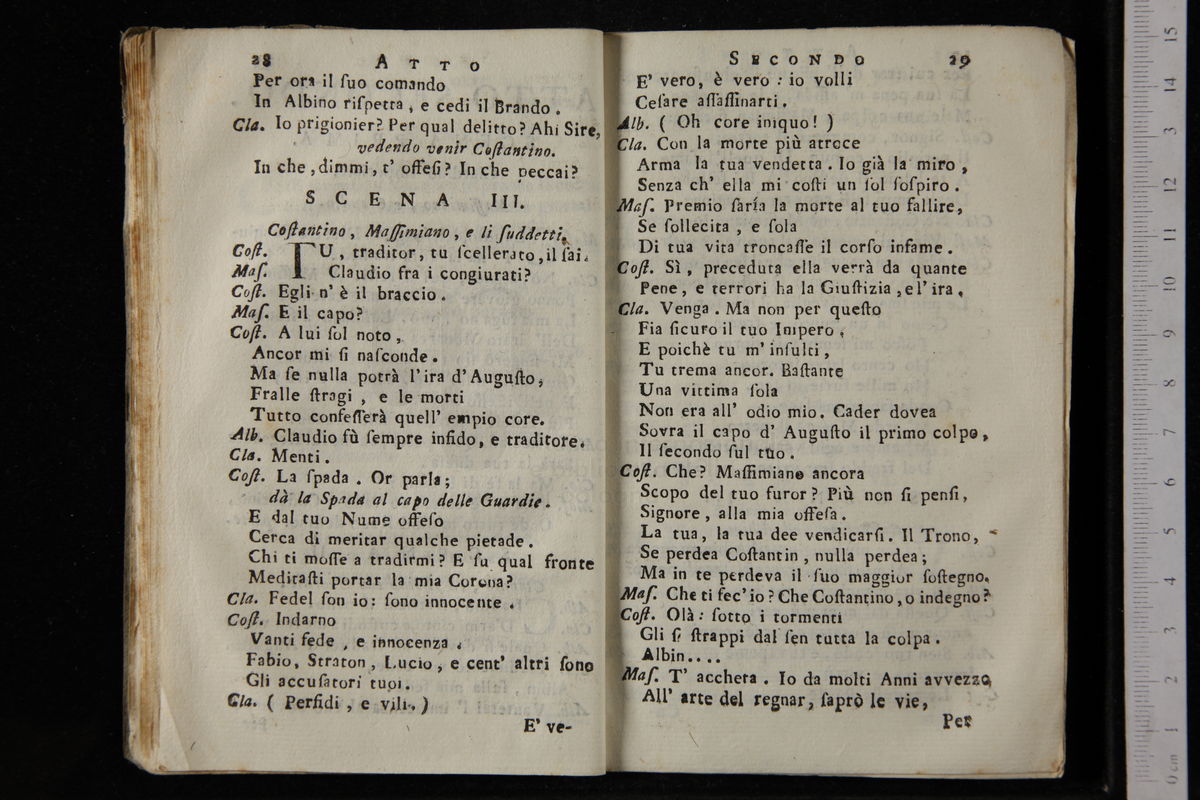 28 ATTO
Per ora il ſuo comando
In Albino riſpetta, e cedi il Brando.
Cla. Io prigionier? Per qual delitto? Ahi Sire,
vedendo venir Coſtantino.
In che, dimmi, t' offeſi? In che peccai?
SCENA III.
Coſtantino, Maſſimiano, e li ſuddetti.
Coſt. TU, traditor, tu ſcellerato, il ſai.
Maſ. Claudio fra i congiurati?
Coſt. Egli n' è il braccio.
Maſ. E il capo?
Coſt. A lui ſol noto,
Ancor mi ſi naſconde.
Ma ſe nulla potrà l'ira d'Auguſto,
Fralle ſtragi, e le morti
Tutto confeſſerà quell' empio core.
Alb. Claudio fù ſempre infido, e traditore.
Cla. Menti.
Coſt. La ſpada. Or parla;
dà la Spada al capo delle Guardie.
E dal tuo Nume offeſo
Cerca di meritar qualche pietade.
Chi ti moſſe a tradirmi? E ſu qual fronte
Meditaſti portar la mia Corona?
Cla. Fedel ſon io: ſono innocente.
Coſt. Indarno
Vanti fede, e innocenza.
Fabio, Straton, Lucio, e cent' altri ſono
Gli accuſatori tuoi.
Cla. ( Perfidi, e vili. )
E' ve-
SECONDO 29
E' vero, è vero: io volli
Ceſare aſſaſſinarti.
Alb. ( Oh core iniquo! )
Cla. Con la morte più atroce
Arma la tua vendetta. Io già la miro,
Senza ch' ella mi coſti un ſol ſoſpiro.
Maſ. Premio ſaría la morte al tuo fallire,
Se ſollecita, e ſola
Di tua vita troncaſſe il corſo infame.
Coſt. Sì, preceduta ella verrà da quante
Pene, e terrori ha la Giuſtizia, e l'ira.
Cla. Venga. Ma non per queſto
Fia ſicuro il tuo Impero,
E poichè tu m'inſulti,
Tu trema ancor. Baſtante
Una vittima ſola
Non era all' odio mio. Cader dovea
Sovra il capo d' Auguſto il primo colpo,
Il ſecondo ſul tuo.
Coſt. Che? Maſſimiano ancora
Scopo del tuo furor? Più non ſi penſi,
Signore, alla mia offeſa.
La tua, la tua dee vendicarſi. Il Trono,
Se perdea Coſtantin, nulla perdea;
Ma in te perdeva il ſuo maggior ſoſtegno.
Maſ. Che ti fec'io? Che Coſtantino, o indegno?
Coſt. Olà: ſotto i tormenti
Gli ſi ſtrappi dal ſen tutta la colpa.
Albin....
Maſ. T' accheta. Io da molti Anni avvezzo
All' arte del regnar, ſaprò le vie,
Per
15
14
13
12
11
10
9
8
7
6
5
4
3
2
1
0 cm